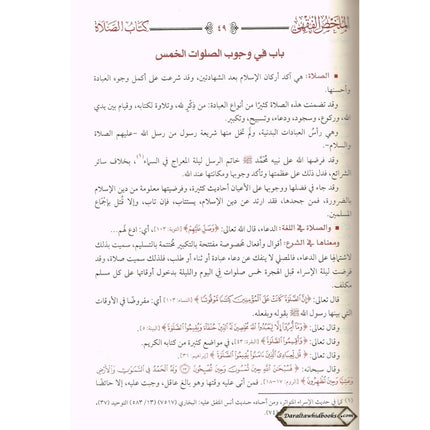 الملخص الفقهي
٤٩
كتاب الصلاة
باب في وجوب الصلوات الخمس
▪ الصلاة: هي آكد أركان الإسلام بعد الشهادتين، وقد شرعت على أكمل وجوه العبادة
وأحسنها.
وقد تضمنت هذه الصلاة كثيرًا من أنواع العبادة: من ذِكْرٍ لله، وتلاوة لكتابه، وقيام بين يدي
الله، وركوع، وسجود، ودعاء، وتسبيح، وتكبير.
وهي رأسُ العبادات البدنية، ولم تَخْلُ منها شريعة رسول من رسل الله -عليهم الصلاة
والسلام-.
وقد فرضها الله على نبيه مُحَمَّدٍ ﷺ خاتم الرسل ليلة المعراج في السماء(١)، بخلاف سائر
الشرائع، فدل ذلك على عظمتها وتأكد وجوبها ومكانتها عند الله.
وقد جاء في فضلها ووجوبها على الأعيان أحاديث كثيرة، وفرضيتها معلومة من دين الإسلام
بالضرورة، فمن جحدها، فقد ارتد عن دين الإسلام، يستتاب، فإن تاب، وإلا قُتل بإجماع
المسلمين.
▪ والصلاة في اللغة: الدعاء، قال الله تعالى: ﴿وَصَلِّ عَلَيْهِمْ﴾ [التوبة: ١٠٣]، أي: ادع لهم...
ومعناها في الشرع: أقوال وأفعال مخصوصة مفتتحة بالتكبير مختتمة بالتسليم، سميت بذلك
لاشتمالها على الدعاء، فالمصلي لا ينفك عن دعاء عبادة أو ثناء أو طلب، فلذلك سميت صلاة، وقد
فرضت ليلة الإسراء قبل الهجرة خمس صلوات في اليوم والليلة بدخول أوقاتها على كل مسلم
مكلف.
قال تعالى: ﴿إِنَّ الصَّلَاةَ كَانَتْ عَلَى الْمُؤْمِنِينَ كِتَابًا مَوْقُوتًا﴾ [النساء: ١٠٣] أي: مفروضًا في الأوقات
التي بينها رسول الله ﷺ بقوله وبفعله.
وقال تعالى: ﴿وَمَا أُمِرُوا إِلَّا لِيَعْبُدُوا اللَّهَ مُخْلِصِينَ لَهُ الدِّينَ حُنَفَاءَ وَيُقِيمُوا الصَّلَاةَ﴾ [البينة: ٥].
وقال تعالى: ﴿وَأَقِيمُوا الصَّلَاةَ﴾ [البقرة: ٤٣]، في مواضع كثيرة من كتابه الكريم.
وقال تعالى: ﴿قُلْ لِعِبَادِيَ الَّذِينَ آمَنُوا يُقِيمُوا الصَّلَاةَ﴾ [إبراهيم: ٣١].
وقال سبحانه: ﴿فَسُبْحَانَ اللَّهِ حِينَ تُمْسُونَ وَحِينَ تُصْبِحُونَ (١٧) وَلَهُ الْحَمْدُ فِي السَّمَاوَاتِ وَالْأَرْضِ
وَعَشِيًّا وَحِينَ تُظْهِرُونَ﴾ [الروم: ١٧-١٨]، فمن أتى عليه وقتها وهو بالغ عاقل، وجبت عليه، إلا حائضًا
(١) كما في حديث الإسراء المتواتر، ومن أصحه: حديث أنس المتفق عليه: البخاري (٧٥١٧) (١٣/ ٥٨٣) التوحيد (٣٧)
Daraltawhidbooks.com